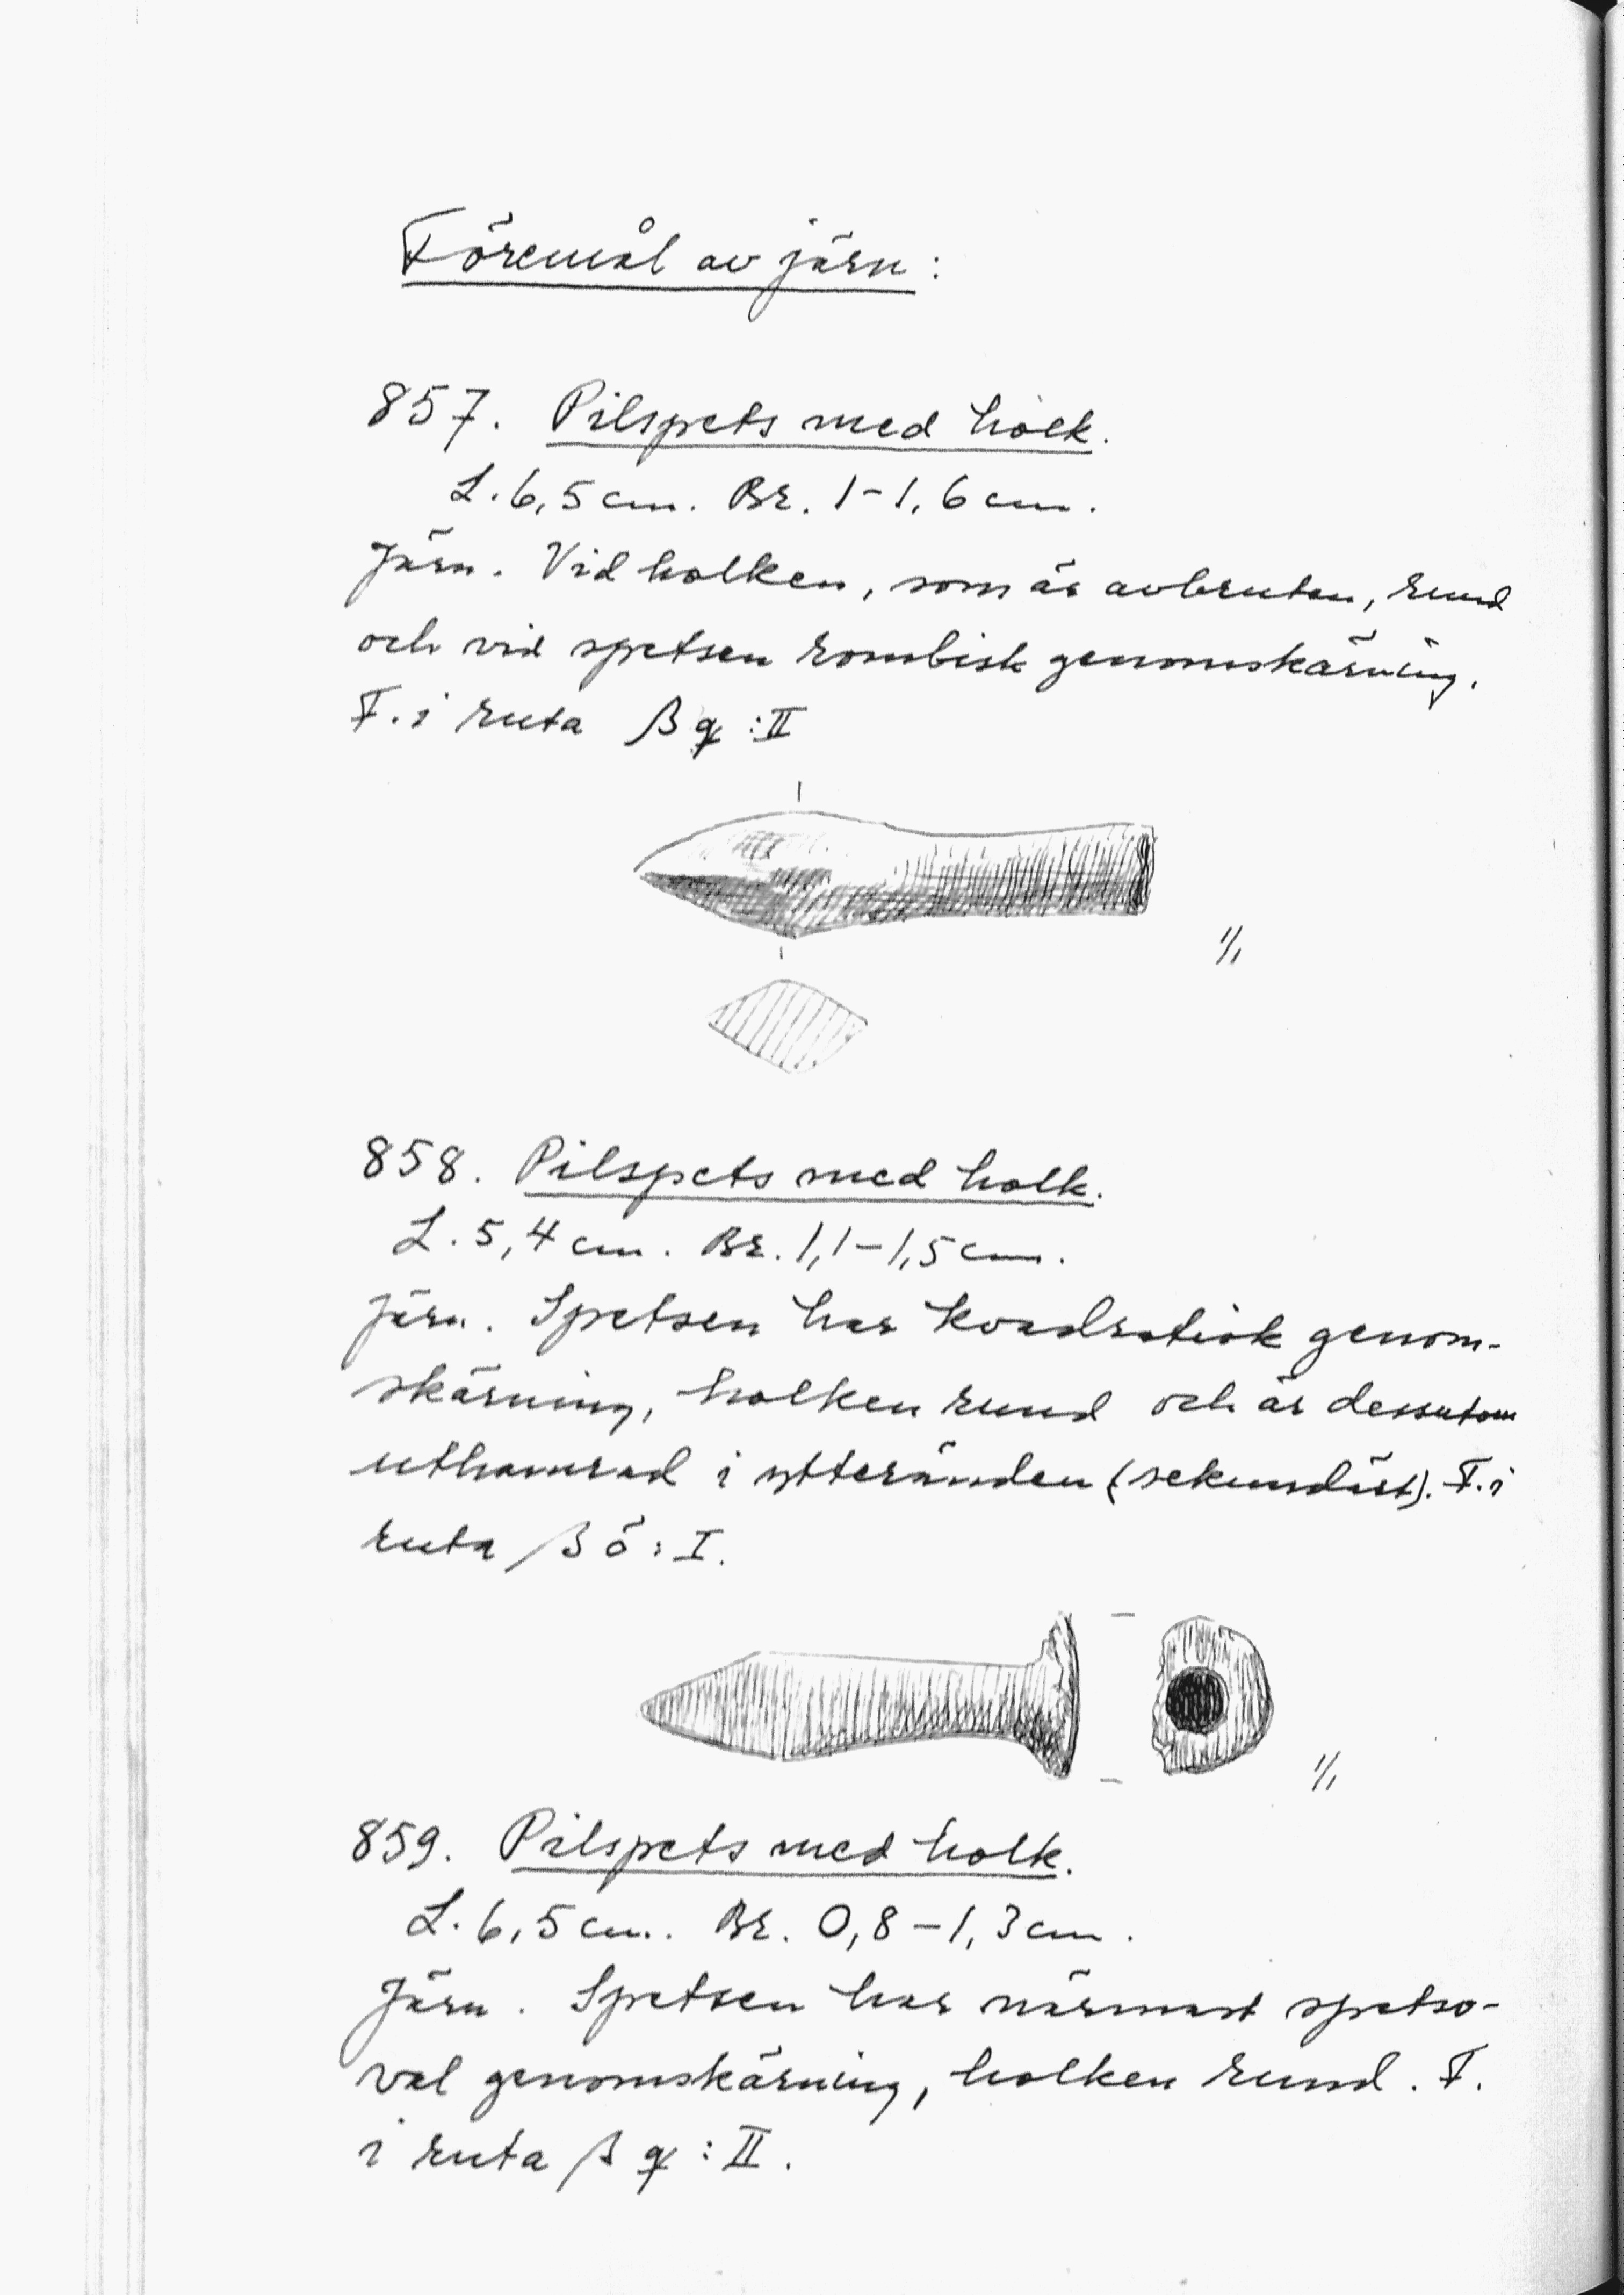 Föremål av järn:
857. Pilspets med holk.
L. 6,5 cm. Br. 1-1,6 cm.
Järn. Vid holken, som är avbruten, rund
och vid spetsen rombisk genomskärning.
F. i ruta β q :II
1/1
858. Pilspets med holk.
L. 5,4 cm. Br. 1,1-1,5 cm.
Järn. Spetsen har kvadratisk genom-
skärning, holken rund och är dessutom
uthamrad i ytteränden (sekundärt). F. i
ruta β ö: I.
1/1
859. Pilspets med holk.
L. 6,5 cm. Br. 0,8-1,3 cm.
Järn. Spetsen har närmast spetso-
val genomskärning, holken rund. F.
i ruta β q : II.